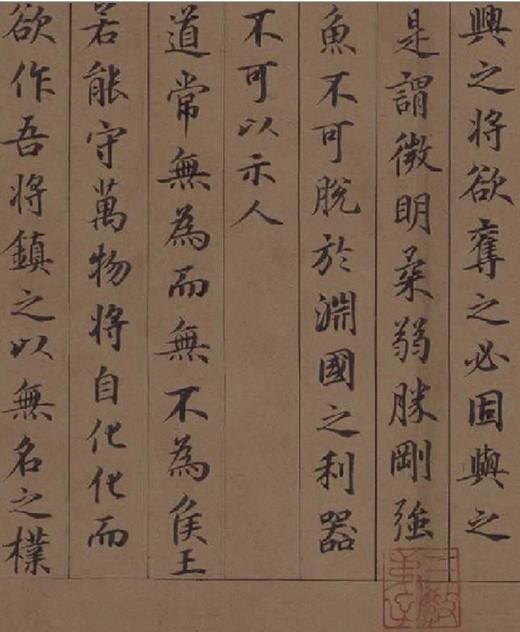 興之將欲奪之必固與之
是謂微明柔弱勝剛強
魚不可脫於淵國之利器
不可以示人
道常無為而無不為侯王
若能守萬物將自化化而
欲作吾將鎮之以無名之樸